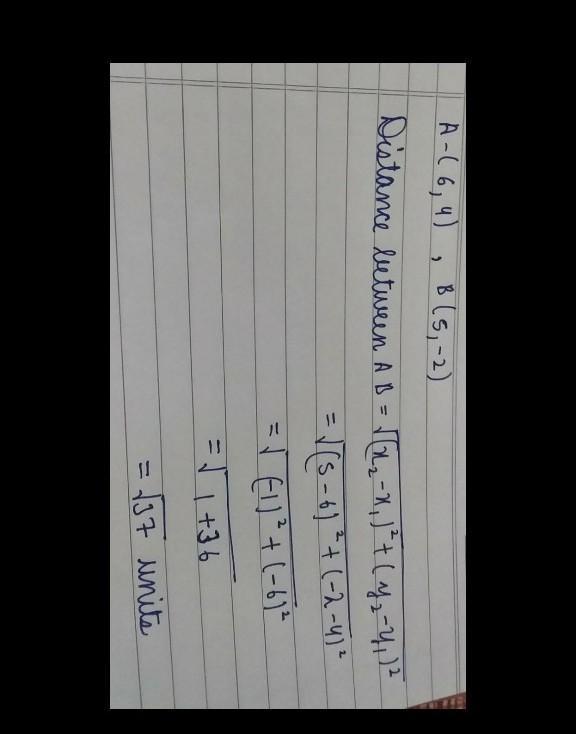 A-(6,4) , B(5,-2)
Distance between AB = √(x₂-x₁)²+(y₂-y₁)²
= √(5-6)²+(-2-4)²
= √(-1)²+(-6)²
= √1+36
= √37 units